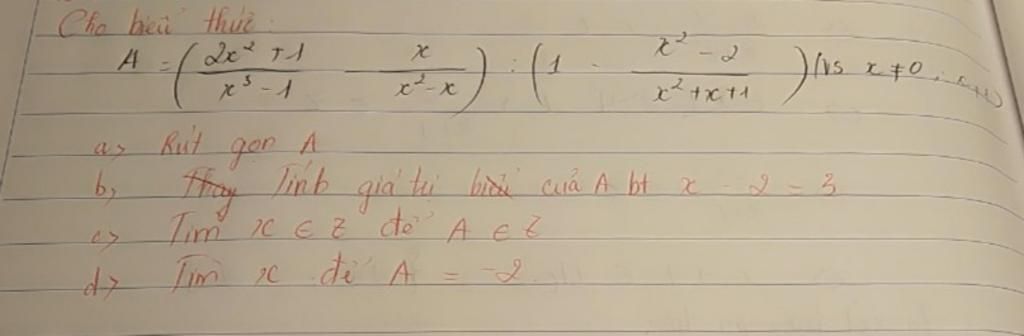 Cho biểu thức:
A = ( (2x² + 1)/(x³ - 1) - x/(x² - x) ) : ( 1 - (x² - 2)/(x² + x + 1) ) (vs x ≠ 0;
a> Rút gọn A
b, Tính giá trị biểu của A bt x - 2 = 3
c> Tìm x ∈ Z để A ∈ Z
d> Tìm x để A = -2